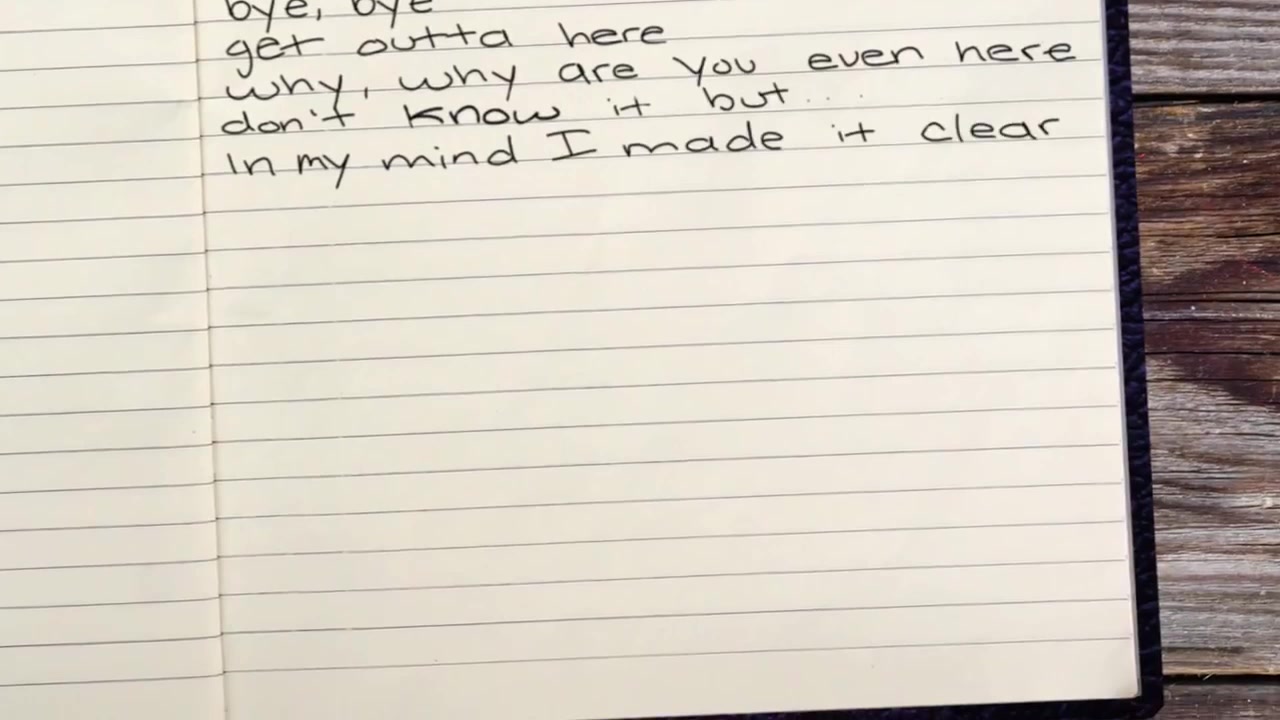 bye, bye
get outta here
why, why are you even here
don't know it but...
in my mind I made it clear